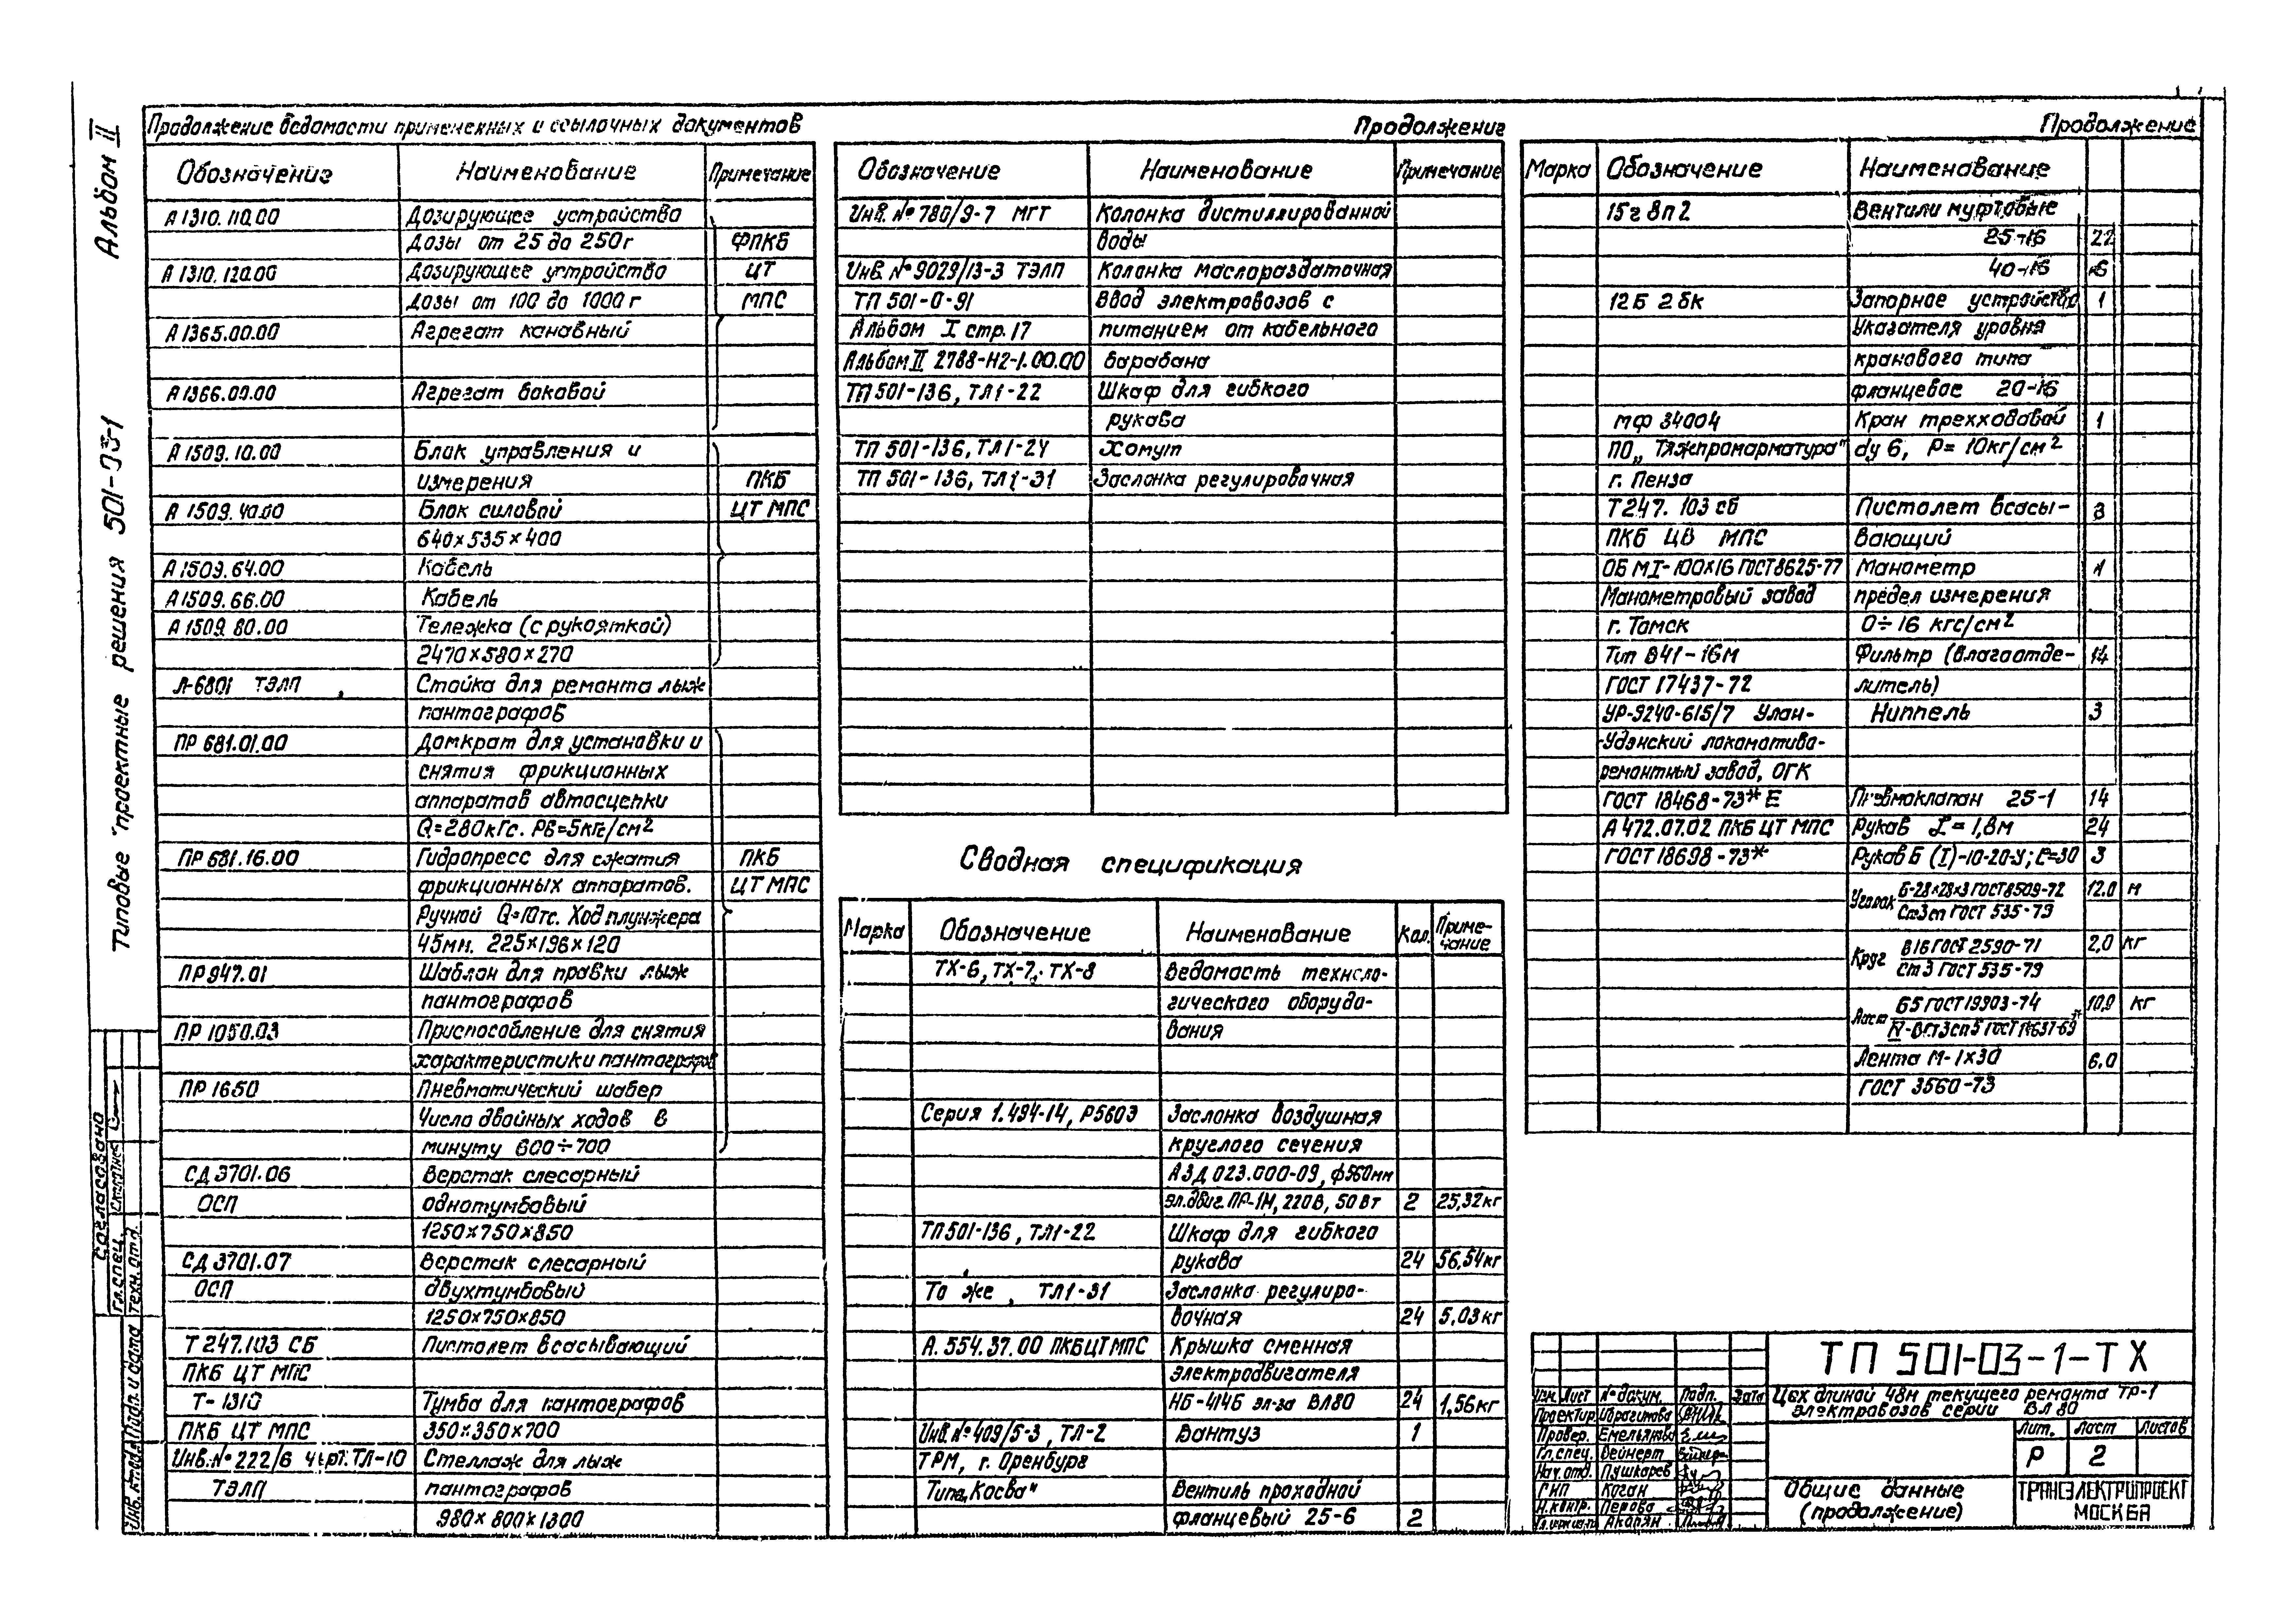 Альбом II
Типовые проектные решения 501-03-1
Продолжение ведомости примененных и ссылочных документов
Обозначение Наименование Примечание
А1310.110.00 Дозирующее устройство
Дозы от 25 до 250г ФПКБ
А1310.120.00 Дозирующее устройство ЦТ
Дозы от 100 до 1000г МПС
А1365.00.00 Агрегат канавный
А1366.00.00 Агрегат боковой
А1509.10.00 Блок управления и
измерения ПКБ
А 1509.40.00 Блок силовой ЦТ МПС
640×535×400
А1509.64.00 Кабель
А1509.66.00 Кабель
А1509.80.00 Тележка (с рукояткой)
2470×580×270
Л-6801 ТЭЛП Стойка для ремонта лыж
пантографов
ПР 681.01.00 Домкрат для установки и
снятия фрикционных
аппаратов автосцепки
Q=280кГс. Рв=5кгс/см2
ПР 681.16.00 Гидропресс для сжатия ПКБ
фрикционных аппаратов. ЦТ МПС
Ручной Q=10тс. Ход плунжера
45мм. 225×196×120
ПР947.01 Шаблон для правки лыж
пантографов
ПР 1050.03 Приспособление для снятия
характеристики пантографов
ПР 1650 Пневматический шабер
Число двойных ходов в
минуту 600÷700
СД 3701.06 Верстак слесарный
ОСП однотумбовый
1250×750×850
СД 3701.07 Верстак слесарный
ОСП двухтумбовый
1250×750×850
Т 247.103 СБ Пистолет всасывающий
ПКБ ЦТ МПС
Т-1310 Тумба для пантографов
ПКБ ЦТ МПС 350×350×700
Инв.№222/6 черт.ТЛ-10 Стеллаж для лыж
ТЭЛП пантографов
980×800×1300
Продолжение
Обозначение Наименование Примечание
Инв.№780/9-7 МГТ Колонка дистиллированной
воды
Инв.№9029/13-3 ТЭЛП Колонка маслораздаточная
ТП 501-0-91 Ввод электровозов с
Альбом I стр.17 питанием от кабельного
Альбом II 2788-Н2-1.00.00 барабана
ТП 501-136, ТЛ1-22 Шкаф для гибкого
рукава
ТП 501-136, ТЛ1-24 Хомут
ТП 501-136, ТЛ1-31 Заслонка регулировочная
Сводная спецификация
Марка Обозначение Наименование Кол. Приме-
чание
ТХ-6, ТХ-7, ТХ-8 Ведомость техноло-
гического оборудо-
вания
Серия 1.494-14, Р5603 Заслонка воздушная
круглого сечения
АЗД 023.000-09, ф560мм
эл.двиг.ПР-1М, 220В, 50Вт 2 25,32кг
ТП501-136, ТЛ1-22 Шкаф для гибкого
рукава 24 56,54кг
То же, ТЛ1-31 Заслонка регулиро-
вочная 24 5,03кг
А.554.37.00 ПКБЦТМПС Крышка сменная
электродвигателя
НБ-414Б эл-за ВЛ80 24 1,56кг
Инв.№409/5-3, ТЛ-2 Вантуз 1
ТРМ, г. Оренбург
Типа„Косва" Вентиль проходной
фланцевый 25-6 2
Продолжение
Марка Обозначение Наименование
15г 8п2 Вентили муфтовые
25-16 22
40-16 6
12Б 2бк Запорное устройство 1
указателя уровня
кранового типа
фланцевое 20-16
МФ 34004 Кран трехходовой 1
ПО„Тяжпромарматура" dу 6, Р=10кг/см2
г. Пенза
Т247.103сб Пистолет всасы- 3
ПКБ ЦВ МПС вающий
ОБ МI-100×16 ГОСТ8625-77 Манометр 1
Манометровый завод предел измерения
г. Томск 0÷16 кгс/см2
Тип В41-16М Фильтр (влагоотде- 14
ГОСТ 17437-72 литель)
УР-9240-615/7 Улан- Ниппель 3
-Удэнский локомотиво-
ремонтный завод, ОГК
ГОСТ 18468-73*Е Пневмоклапан 25-1 14
А472.07.02 ПКБ ЦТ МПС Рукав L=1,8м 24
ГОСТ18698-73* Рукав Б (I)-10-20-У; ℓ=30 3
Уголок Б-28×28×3 ГОСТ8509-72 12.0 м
Ст3сп ГОСТ 535-79
Круг В16 ГОСТ 2590-71 2,0 кг
Ст3 ГОСТ 535-79
Лист Б5 ГОСТ19903-74 10,0 кг
IV-ВСт3сп5 ГОСТ14637-69*
Лента М-1×30 6,0
ГОСТ 3560-73
ТП 501-03-1-ТХ
Цех длиной 48м текущего ремонта ТР-1
электровозов серии ВЛ80
Изм. Лист №докум. Подп. Дата
Проектир. Ибрагимова
Провер. Емельянова
Гл.спец. Вейнерт
Нач.отд. Пушкарев
ГИП Коган
Н.контр. Перова
Акопян
Лит. Лист Листов
Р 2
Общие данные
(продолжение)
ТРАНСЭЛЕКТРОПРОЕКТ
МОСКВА
Согласовано
Гл.спец.
техн.отд.
Инв.№подл. Подп. и дата